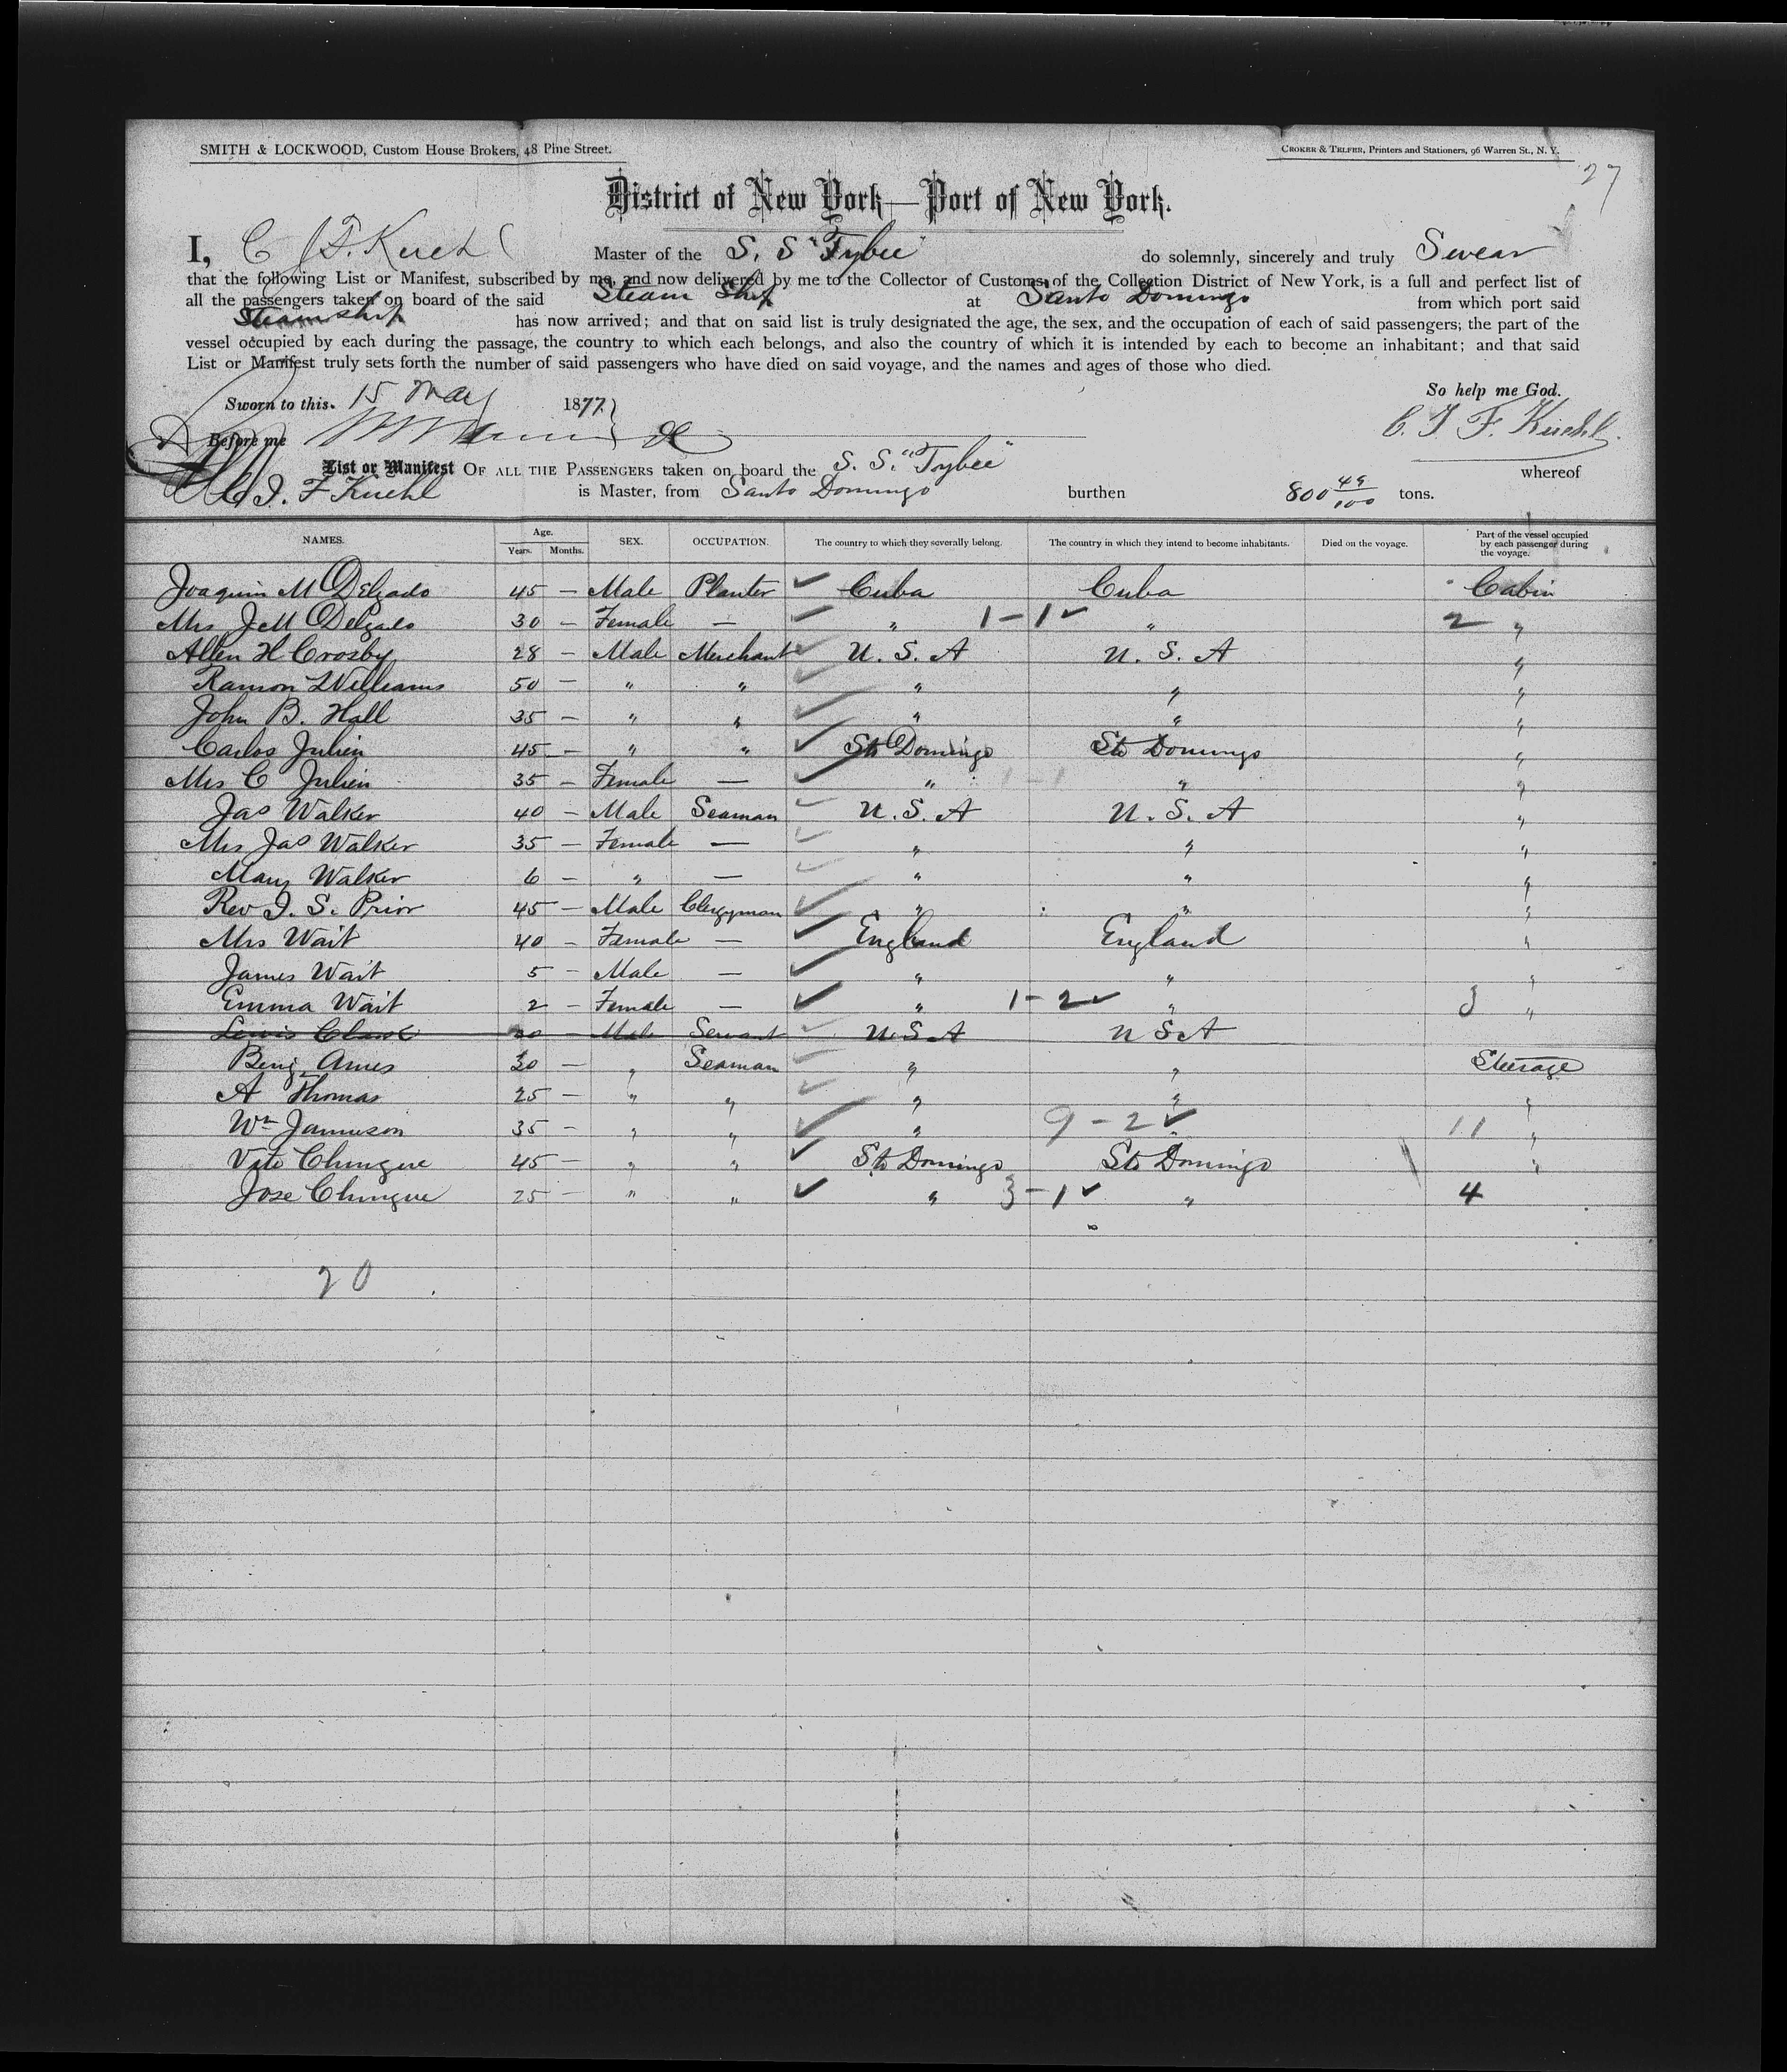 SMITH & LOCKWOOD, Custom House Brokers, 48 Pine Street.
CROKER & TELFER, Printers and Stationers, 96 Warren St., N. Y.
27
District of New York—Port of New York.
I, C. J. F. Kuehl Master of the S. S "Tybee" do solemnly, sincerely and truly Swear
that the following List or Manifest, subscribed by me, and now delivered by me to the Collector of Customs of the Collection District of New York, is a full and perfect list of
all the passengers taken on board of the said Steam Ship at Santo Domingo from which port said
Steamship has now arrived; and that on said list is truly designated the age, the sex, and the occupation of each of said passengers; the part of the
vessel occupied by each during the passage, the country to which each belongs, and also the country of which it is intended by each to become an inhabitant; and that said
List or Manifest truly sets forth the number of said passengers who have died on said voyage, and the names and ages of those who died.
So help me God.
Sworn to this 15 May 1877
C. J. F. Kuehl
Before me
List or Manifest OF ALL THE PASSENGERS taken on board the S. S. "Tybee" whereof
C. J. F Kuehl is Master, from Santo Domingo burthen 800 49/100 tons.
NAMES. Age. Years. Months. SEX. OCCUPATION. The country to which they severally belong. The country in which they intend to become inhabitants. Died on the voyage. Part of the vessel occupied by each passenger during the voyage.
Joaquin M Delgado 45 — Male Planter ✓ Cuba Cuba Cabin
Mrs J M Delgado 30 — Female — ✓ " 1-1 ✓ " 2 "
Allen H Crosby 28 — Male Merchant ✓ U. S. A U. S. A "
Ramon Williams 50 — " " ✓ " " "
John B. Hall 35 — " " ✓ " " "
Carlos Julien 45 — " " ✓ Sto Domingo Sto Domingo "
Mrs C Julien 35 — Female — ✓ " 1-1 " "
Jas Walker 40 — Male Seaman ✓ U. S. A U. S. A "
Mrs Jas Walker 35 — Female — ✓ " " "
Mary Walker 6 — " — ✓ " " "
Rev J. S. Prior 45 — Male Clergyman ✓ " " "
Mrs Wait 40 — Female — ✓ England England "
James Wait 5 — Male — ✓ " " "
Emma Wait 2 — Female — ✓ " 1-2 ✓ " 3 "
Lewis Clark 20 — Male Servant ✓ U. S. A U S A
Benj. Ames 30 — " Seaman ✓ " " Steerage
A Thomas 25 — " " ✓ " " "
Wm Jamieson 35 — " " ✓ " 9-2 ✓ 11 "
Vito Chingue 45 — " " ✓ Sto Domingo Sto Domingo "
Jose Chingue 25 — " " ✓ " 3-1 ✓ " 4
20